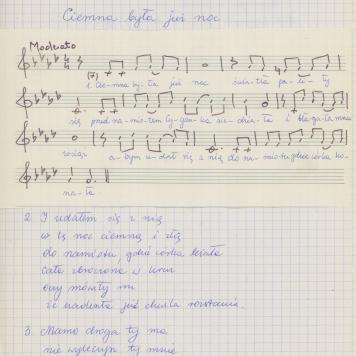 Ciemna była już noc
Moderato
1. Ciem-na by-ła już noc świa-tła pa-li-ły
się pod na-mio-tem cy-gan-ka sie-dzia-ła i bła-ga-ła mnie
a-bym u-dał się z nią do na-mio-tu gdzie córka ko-
na-ła.
2. I udałem się z nią
w tę noc ciemną i złą
do namiotu, gdzie córka leżała
cała zbroczona w krwi
oczy mówiły mi
że nadeszła już chwila rozstania.
3. Mamo droga ty ma
nie wyleczysz ty mnie